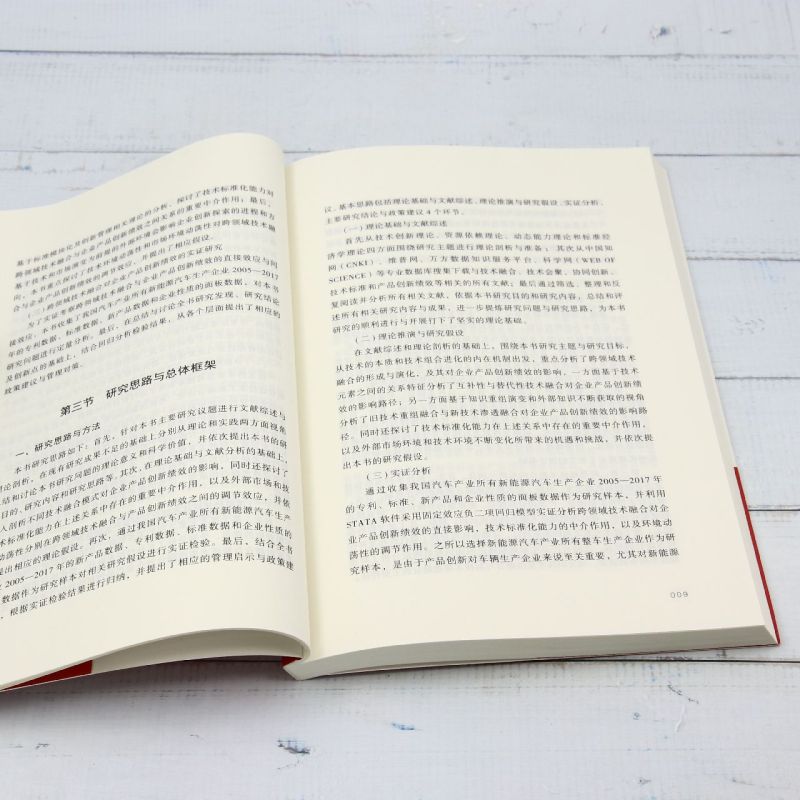 基于标准模块化及创新管理相关理论的分析，探讨了技术标准化能力对
跨领域技术融合与企业产品创新绩效之间关系的重要中介作用；最后，
基于技术和市场要素方面提出的外部环境影响企业创新探索的进程和方
向，本书重点探讨了技术环境动荡性和市场环境动荡性对跨领域技术融
合与企业产品创新绩效的调节效应，并提出了相应假设。
（三）跨领域技术融合对企业产品创新绩效的实证研究
为了实证考察跨领域技术融合与企业产品创新绩效的直接效应与间
接效应，本书收集了我国汽车产业所有新能源汽车生产企业2005—2017
年的专利数据、标准数据、新产品数据和企业性质的面板数据，对本书
研究问题进行定量分析。最后，在总结与讨论全书研究发现、研究结论
及创新点的基础上，结合回归分析检验结果，从各个层面提出了相应的
政策建议与管理对策。
第三节 研究思路与总体框架
一、研究思路与方法
本书研究思路如下：首先，针对本书主要研究议题进行文献综述与
理论剖析，在现有研究成果不足的基础上分别从理论和实践两方面视角
结和讨论本书研究问题的理论意义和科学价值，并依次提出本书的研
目的、研究内容和研究思路等。其次，在理论基础与文献分析的基础上，
入剖析不同技术融合模式对企业产品创新绩效的影响，同时还探讨了
术标准化能力在上述关系中存在的重要中介作用，以及外部市场和技
动荡性分别在跨领域技术融合与产品创新绩效之间的调节效应，并依
提出相应的理论假设。再次，通过我国汽车产业所有新能源汽车生产
2005—2017年的新产品数据、专利数据、标准数据和企业性质的
数据作为研究样本对相关研究假设进行实证检验。最后，结合全书
，根据实证检验结果进行归纳，并提出了相应的管理启示与政策建
议。基本思路包括理论基础与文献综述、理论推演与研究假设、实证分析、
主要研究结论与政策建议4个环节。
（一）理论基础与文献综述
首先从技术创新理论、资源依赖理论、动态能力理论和标准经
济学理论四方面围绕研究主题进行理论剖析与准备；其次从中国知
网（CNKI）、维普网、万方数据知识服务平台、科学网（WEB OF
SCIENCE）等专业数据库搜集下载与技术融合、技术会聚、协同创新、
技术标准和产品创新绩效等相关的所有文献；最后通过筛选、整理和反
复阅读并分析所有相关文献，依据本书研究目的和研究内容，总结和评
述所有相关研究内容与成果，进一步提炼研究问题与研究思路，为本书
研究的顺利进行与开展打下了坚实的理论基础。
（二）理论推演与研究假设
在文献综述和理论剖析的基础上，围绕本书研究主题与研究目标，
从技术的本质和技术组合进化的内在机制出发，重点分析了跨领域技术
融合的形成与演化，及其对企业产品创新绩效的影响。一方面基于技术
元素之间的关系特征分析了互补性与替代性技术融合对企业产品创新绩
效的影响路径；另一方面基于知识重组演变与外部知识不断获取的视角
分析了旧技术重组融合与新技术渗透融合对企业产品创新绩效的影响路
径。同时还探讨了技术标准化能力在上述关系中存在的重要中介作用，
以及外部市场环境和技术环境不断变化所带来的机遇和挑战，并依次提
出本书的研究假设。
（三）实证分析
通过收集我国汽车产业所有新能源汽车生产企业2005—2017年
的专利、标准、新产品和企业性质的面板数据作为研究样本，并利用
STATA软件采用固定效应负二项回归模型实证分析跨领域技术融合对企
业产品创新绩效的直接影响、技术标准化能力的中介作用，以及环境动
荡性的调节作用。之所以选择新能源汽车产业所有整车生产企业作为研
究样本，是由于产品创新对车辆生产企业来说至关重要，尤其对新能源
009